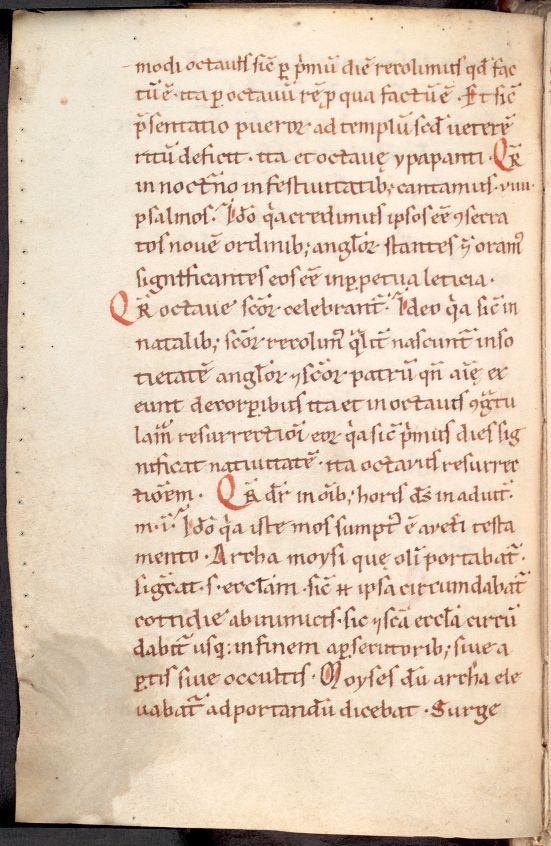 modi octauis sic̄ ꝑ p̄mū diē recolimus qđ fac
tū ē · ita ꝑ octauū rē ꝓ qua factū ē · Et sic̄
p̄sentatio pueroꝝ ad templū scđ ueterē
ritū deficit · ita et octauę ypapanti · QR̄
in noct̄no in festiuitatib; cantamus · viiii ·
psalmos · Ido̅ q̄a credimus ipsos eē ꝯserua
tos nouē ordinib; angl̄oꝝ stantes ⁊ oram̄
significantes eos eē in ꝑpetua leticia ·
QR̄ octaue sc̄oꝝ celebrant̄ · Ideo q̄a sic̄ in
natalib; sc̄oꝝ recolim̄ nascunt̄ in so
tietatē angl̄oꝝ ⁊ sc̄oꝝ patrū qn̄ aīę ex
eunt de corꝑibus ita et in octauis ꝯḡtu
lam̄ resurrectioī eoꝝ q̄a sic̄ p̄mus dies sig
nificat natiuitatē · ita octauus resurrec
tiōem · QR̄ dr̄ in oīb; horis dˢ in adiut̄ ·
m · i · Ido̅ q̄a iste mos sumpt̄ ē a uet̄i testa
mento · Archa moysi que olī portabat̄ ·
sigc̄at · s · eccl̄am · sic̄ ipsa circumdabat̄
cottidie ab inimicis · sic ⁊ sc̄a eccl̄a circū
dabit̄ usq; in finem a ꝑsecutorib; siue a
ꝑtis siue occultis · Moyses dū archa ele
uabat̄ ad portandū dicebat · Surge